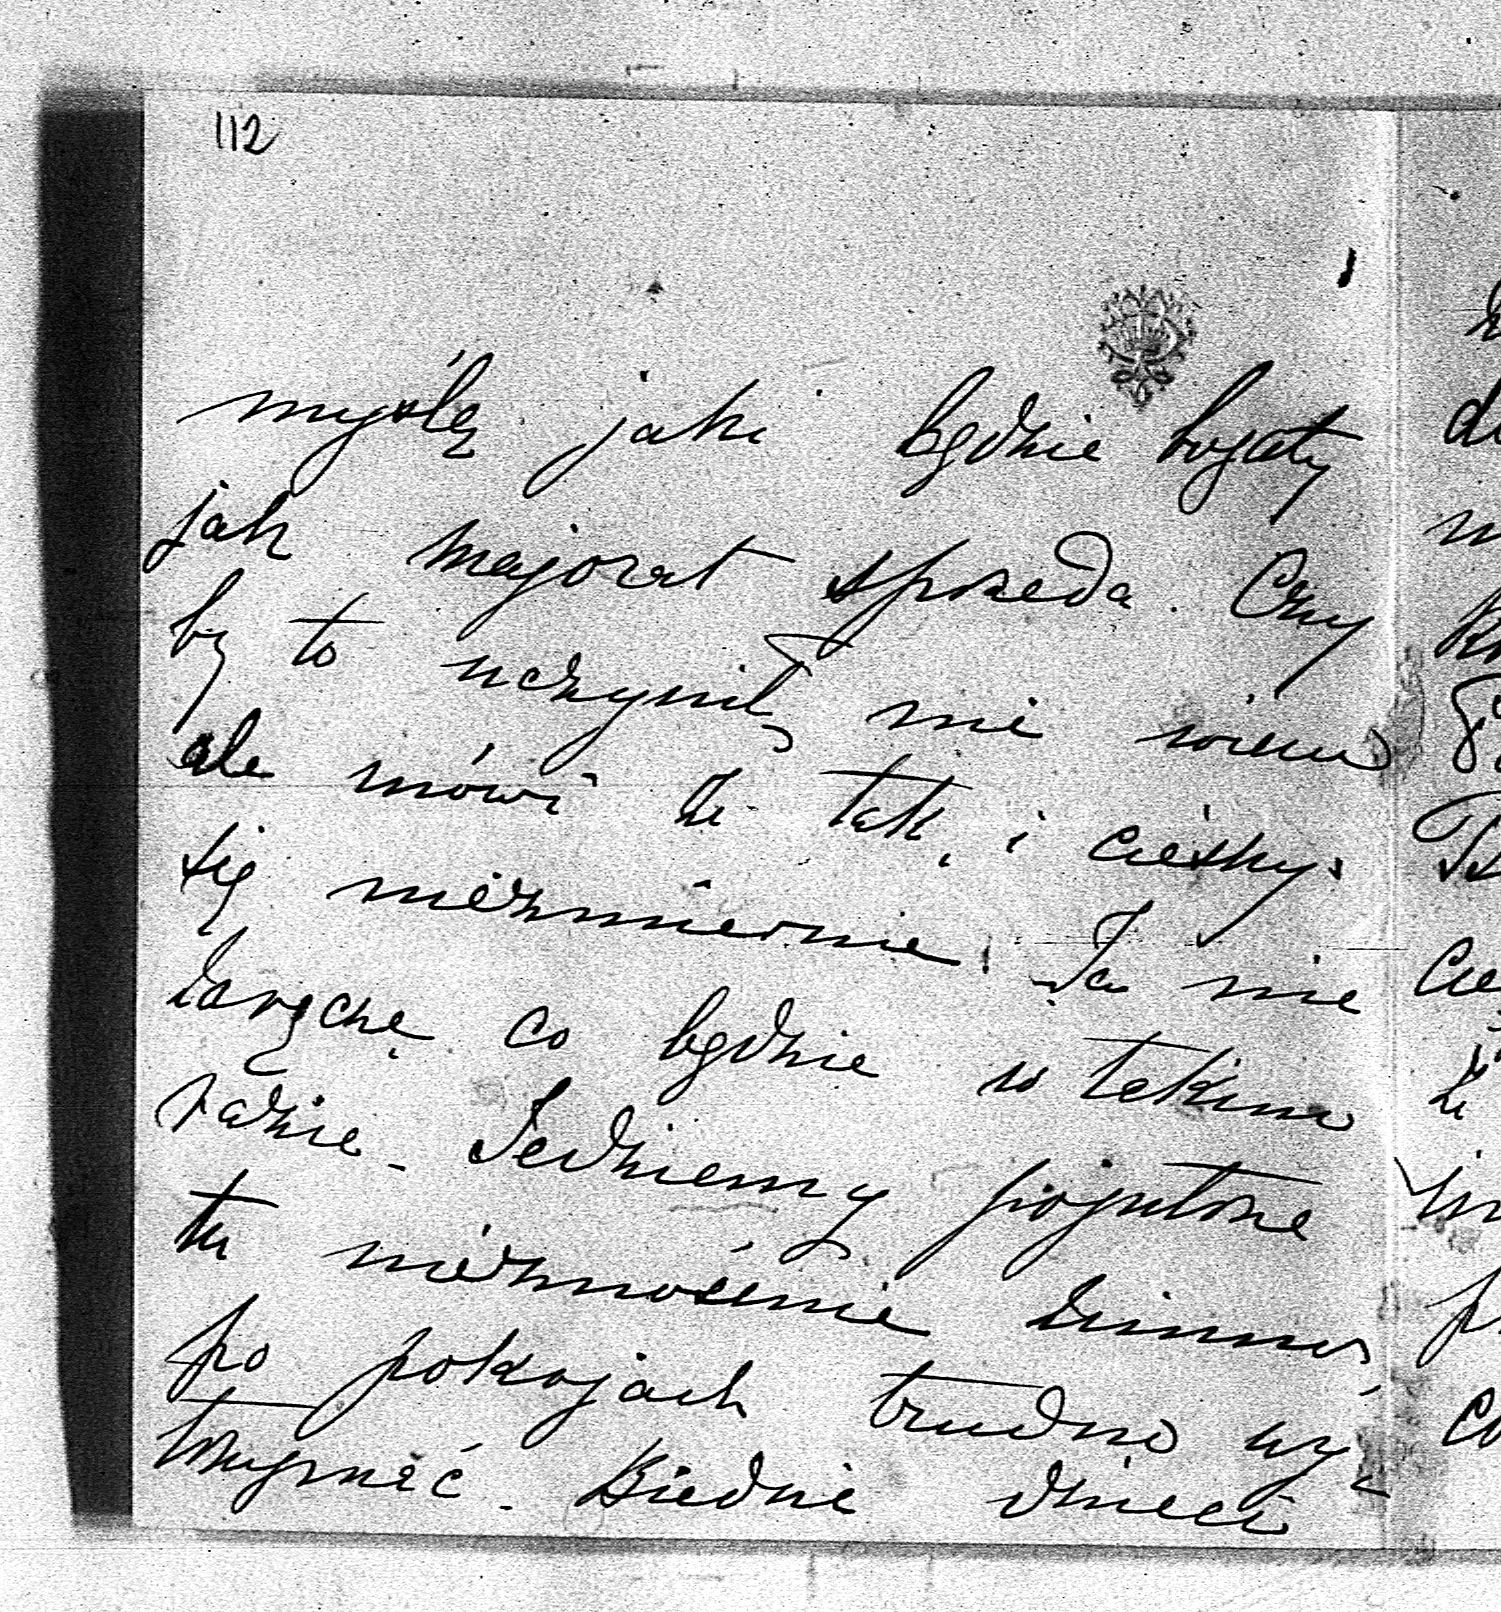 112
myślą jaki będzie bogaty
jak majorat sprzeda. Czy
by to uczynił, nie wiem
ale mówi że tak, i cieszy
się niezmiernie. Ja nie
zaręczę co będzie w takim
razie. Jedziemy pojutrze
tu nieznośnie zimno,
po pokojach trudno wy-
trzymać. Biedne dzieci